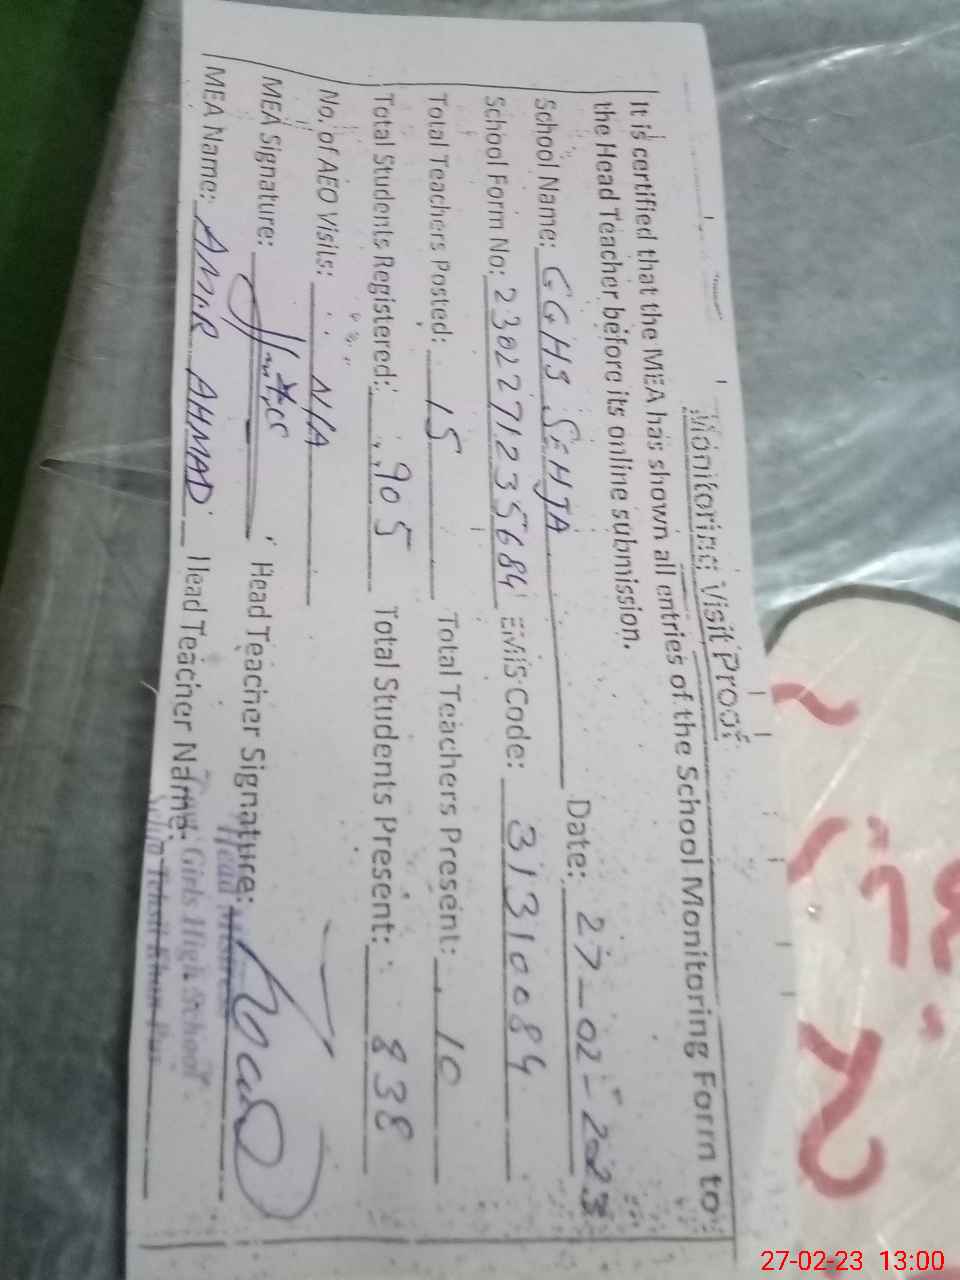 Monitoring Visit Proof
It is certified that the MEA has shown all entries of the School Monitoring Form to
the Head Teacher before its online submission.
School Name: GGHS SEHJA Date: 27-02-2023
School Form No: 2302271235684 EMIS Code: 31310084
Total Teachers Posted: 15 Total Teachers Present: 10
Total Students Registered: 905 Total Students Present: 838
No. of AEO Visits: N/A
MEA Signature: Head Teacher Signature:
MEA Name: AMIR AHMAD Head Teacher Name:
Head Mistress
Govt. Girls High School
Sehja Tehsil Khan Pur
27-02-23 13:00